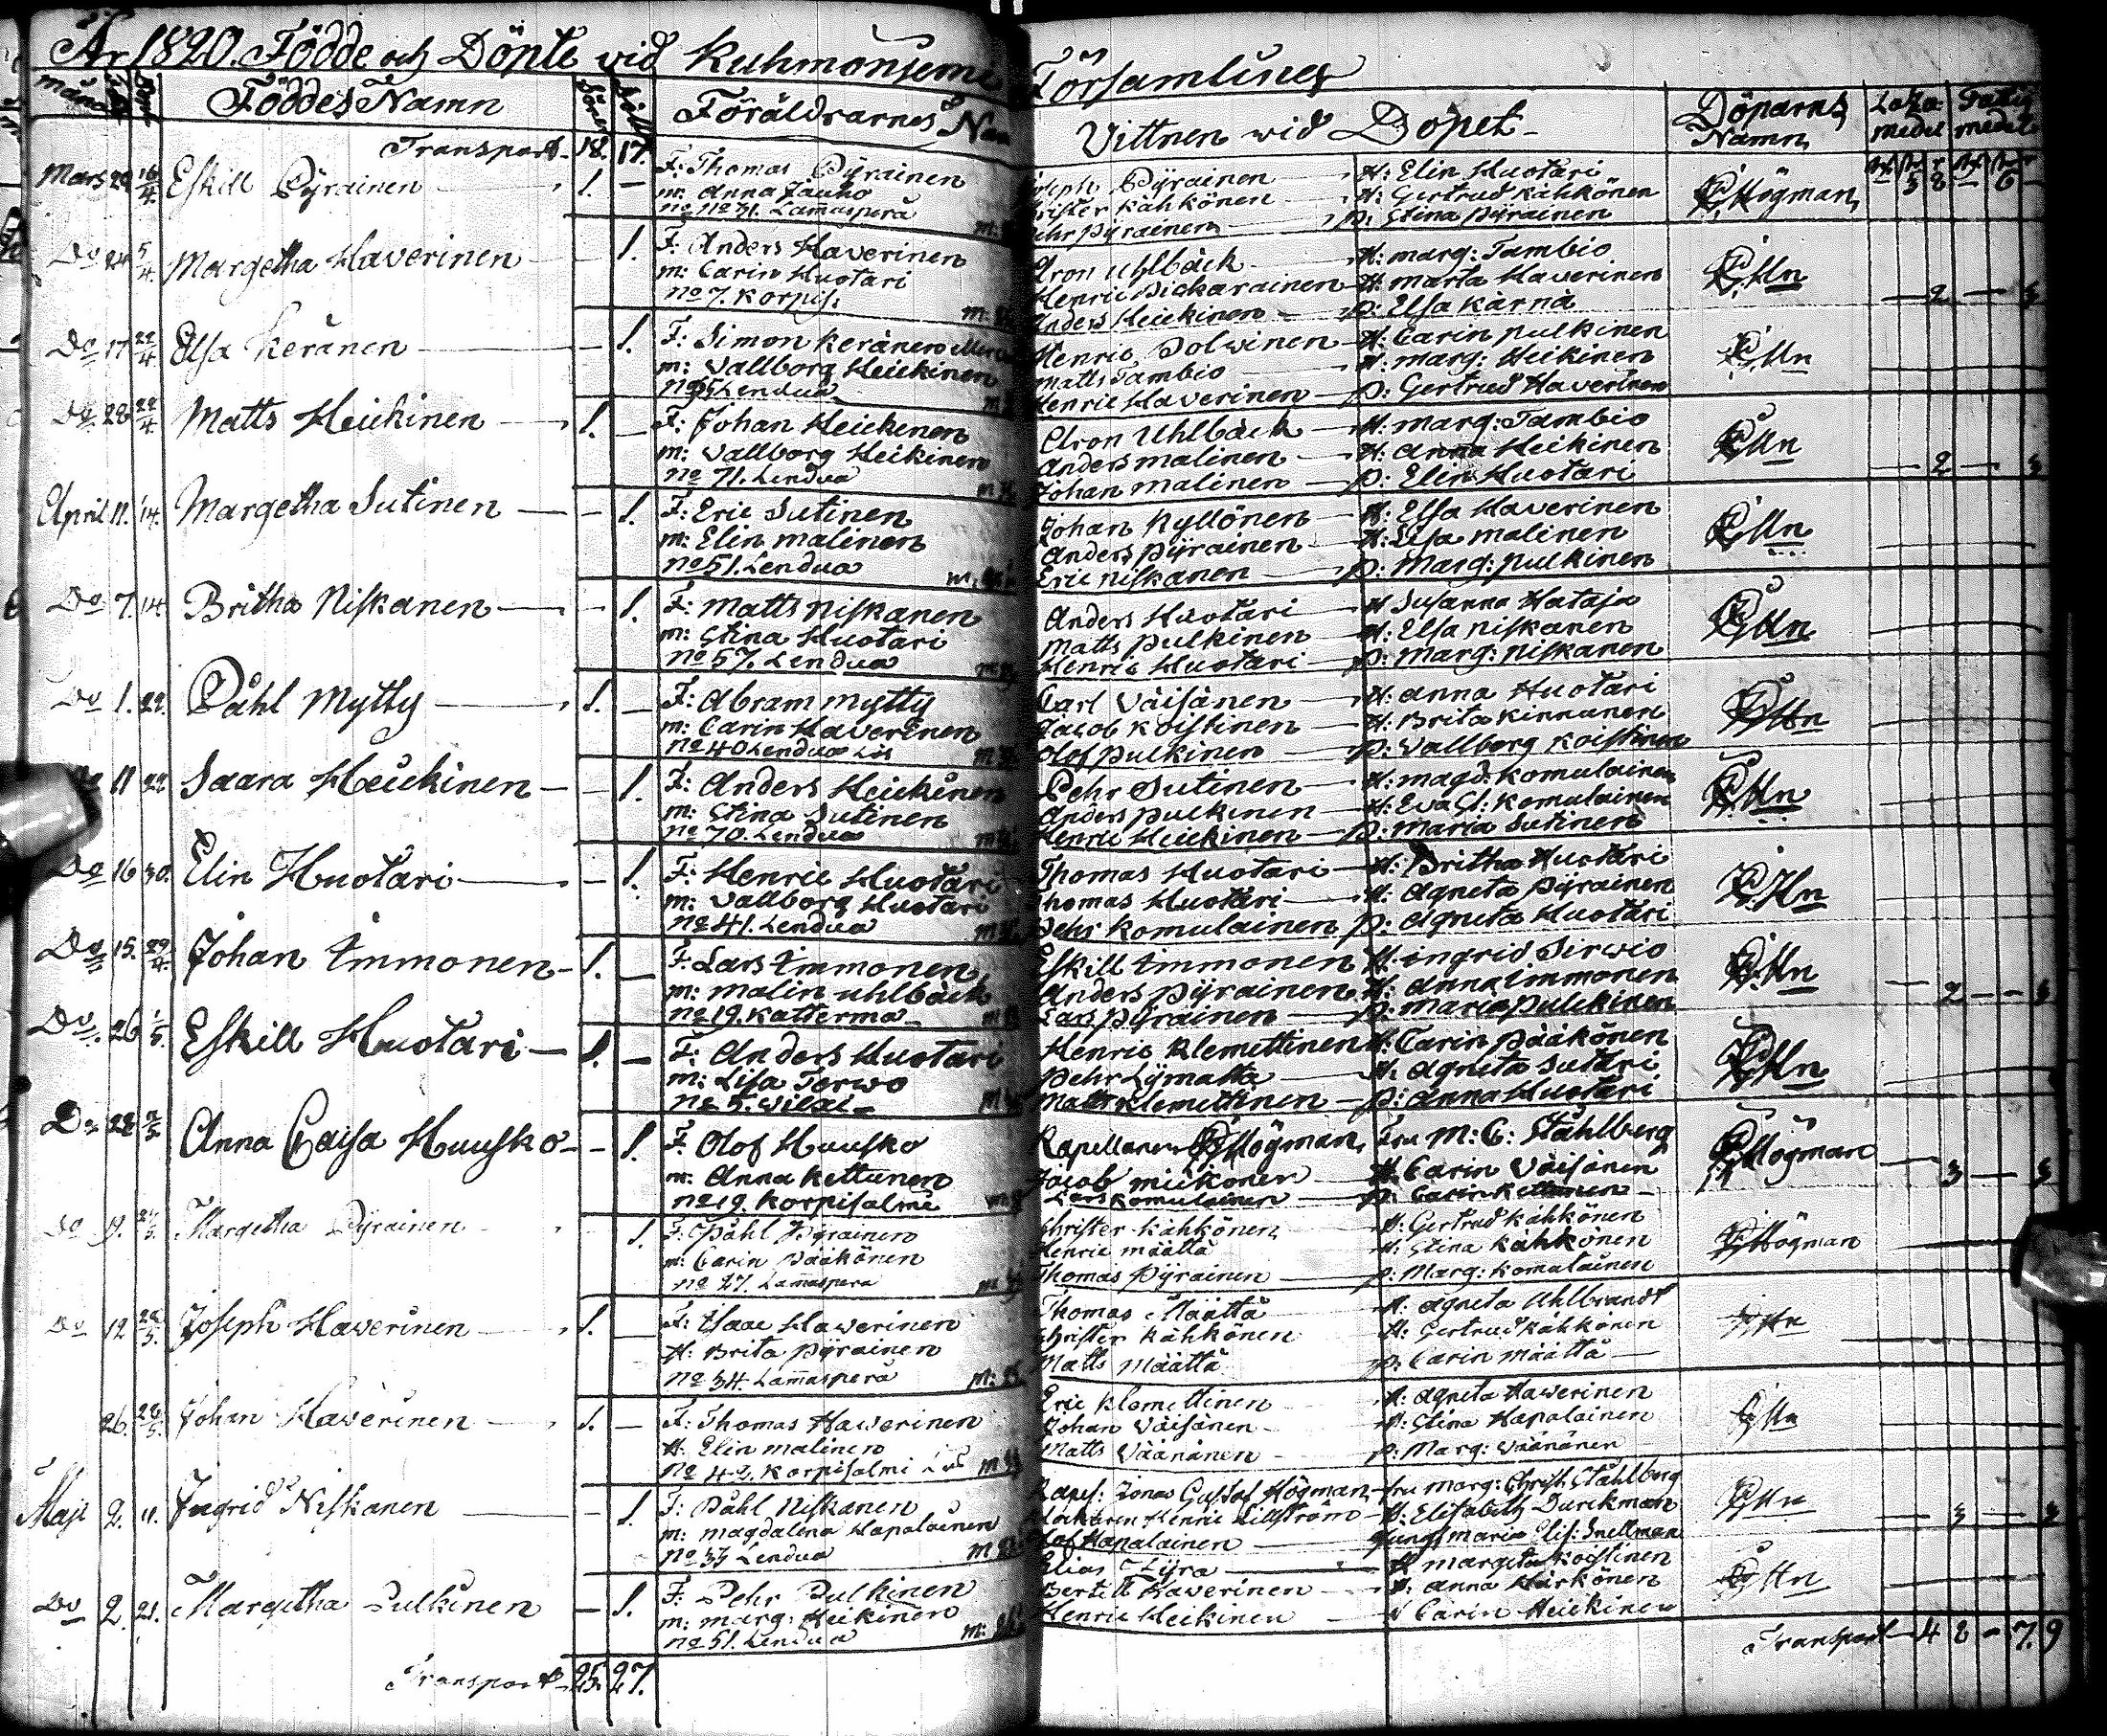 År 1820. Födde och Döpte vid Kuhmoniemi Församling
Födde Dop Föddes Namn Söner Föräldrarnes Vittnen wid Dopet Döparns Namn medel medel
Transport 18. 17.
Mars 16/4 Eskill Pyrainen 1. —
F: Thomas Pyrainen
m: Anna Jauho
No 31. Lam̄asperä
Joseph Pyrainen — H: Elin Huotari
Christer Kähkönen — H: Gertrud Kähkönen
Pehr Pyrainen — p: Stina Pyrainen
Högman
Do 24 5/4 Margetha Haverinen — 1.
F: Anders Haverinen
m: Carin Huotari
No 7. Korpis:
Aron Uhlbäck — H: marg: Tambio
Henric Pickarainen H: marta Haverinen
Anders Heickinen — p: Elsa Kärnä
Hn — 2 —
Do 17 22/4 Elsa Keränen — 1.
F: Simon Keränen
m: Vallborg Heickinen
Lendua
Henric Polvinen — H: Carin Pulkinen
Matts Tambio — H: marg: Heikinen
Henric Haverinen — p: Gertrud Haverinen
Hn
Do 28 22/4 Matts Heickinen — 1. —
F: Johan Heickinen
m: Vallborg Heikinen
No 71. Lendua
Aron Uhlbäck — H: marg: Tambio
Anders malinen — H: Anna Heikinen
Johan malinen — p: Elin Huotari
Hn — 2 —
April 11. 14. Margetha Sutinen — 1.
F: Eric Sutinen
m: Elin malinen
No 51. Lendua
Johan Kyllönen — H: Elsa Haverinen
Anders Pyrainen — H: Elsa malinen
Eric Niskanen — p: Marg: Pulkinen
Hn
Do 7. 14. Britha Niskanen — 1.
F: Matts Niskanen
m: Stina Huotari
No 57. Lendua
Anders Huotari — H Susanna Hataja
Matts Pulkinen — H: Elsa Niskanen
Henric Huotari — p: Marg: Niskanen
Hn
Do 1. 22. Påhl Mytty — 1. —
F: Abram Mytty
m: Carin Haverinen
No 40 Lendua
Carl Väisänen — H: Anna Huotari
Jacob Koistinen — H: Brita Kinnunen
Olof Pulkinen — p: Vallborg Koistinen
Hn
Do 11 22 Saara Heickinen — 1.
F: Anders Heickinen
m: Stina Sutinen
No 70. Lendua
Pehr Sutinen — H: magd: Komulainen
Anders Pulkinen — H: Eva St: Komulainen
Henric Heickinen — p: Maria Sutinen
Hn
Do 16 30. Elin Huotari — 1.
F: Henric Huotari
m: Vallborg Huotari
No 41. Lendua
Thomas Huotari — H: Britha Huotari
Thomas Huotari — H: Agneta Pyrainen
Pehr Komulainen p: Agneta Huotari
Hn
Do 15. 29/4 Johan Immonen — 1. —
F: Lars Immonen
m: Malin Uhlbäck
No 19. Katterma
Eskill Immonen H: ingrid Servio
Anders Pyrainen H: Anna Immonen
Lars Pyrainen — p: Maria Pulckinen
Hn — 2 — —
Do 26 1/5 Eskill Huotari — 1. —
F: Anders Huotari
m: Lisa Terwo
No 5. Wiexi
Henric Klemettinen H: Carin Pääkönen
Pehr Lÿmatta — H. Agneta Sutari
Matts Klemettinen — p: Anna Huotari
Hn
Do 22 2/5 Anna Caisa Huusko — 1.
F: Olof Huusko
m: Anna Kettunen
No 19. Korpisalmi
Kapellanen Högman Fru M: C: Ståhlberg
Jacob Mickonen — H. Carin Väisänen
Lars Komulainen — p: Carin Kettunen
Högman — 3 —
Do 9. Margetha Pyrainen — 1.
F: Påhl Pyrainen
m: Carin Pääkönen
No 27. Lam̄aspera
Christer Kähkönen — H: Gertrud Kähkönen
Henric Määttä — H: Stina Kähkönen
Thomas Pyrainen — p: Marg: Komulainen
Högman
Do 12 28/5 Joseph Haverinen — 1. —
F: Isaac Haverinen
H: Brita Pyrainen
No 34. Lam̄asperä
Thomas Määttä — H: Agneta Uhlbrandt
Christer Kähkönen — H: Gertrud Kähkönen
Matts Määttä — p: Carin Määttä
Hn
26. 28/5 Johan Haverinen — 1. —
F: Thomas Haverinen
H: Elin Malinen
No 42. Korpisalmi
Eric Klemettinen — H: Agneta Haverinen
Johan Väisänen — H: Stina Hapalainen
Matts Väänänen — p: Marg: Väänänen
Hn
Maji 2. 11. Ingrid Niskanen — 1.
F: Påhl Niskanen
m: Magdalena Hapalainen
Lendua
Kapel: Jonas Gustaf Högman — Fru marg: Christ: Ståhlberg
Henric Lillström — H: Elisabeth Durchman
Olof Hapalainen — Jungf maria Elis: Snellman
Hn — 3 —
Do 2 21. Margetha Pulkinen — 1.
F: Pehr Pulkinen
m: marg: Heikinen
No 51. Lendua
Elias Zyra — H Margeta Koistinen
Bertill Haverinen — H: Anna Härkönen
Henric Heikinen — Carin Heickinen
Hn
Transport 25. 27.
Transport 4 2 — 7. 9